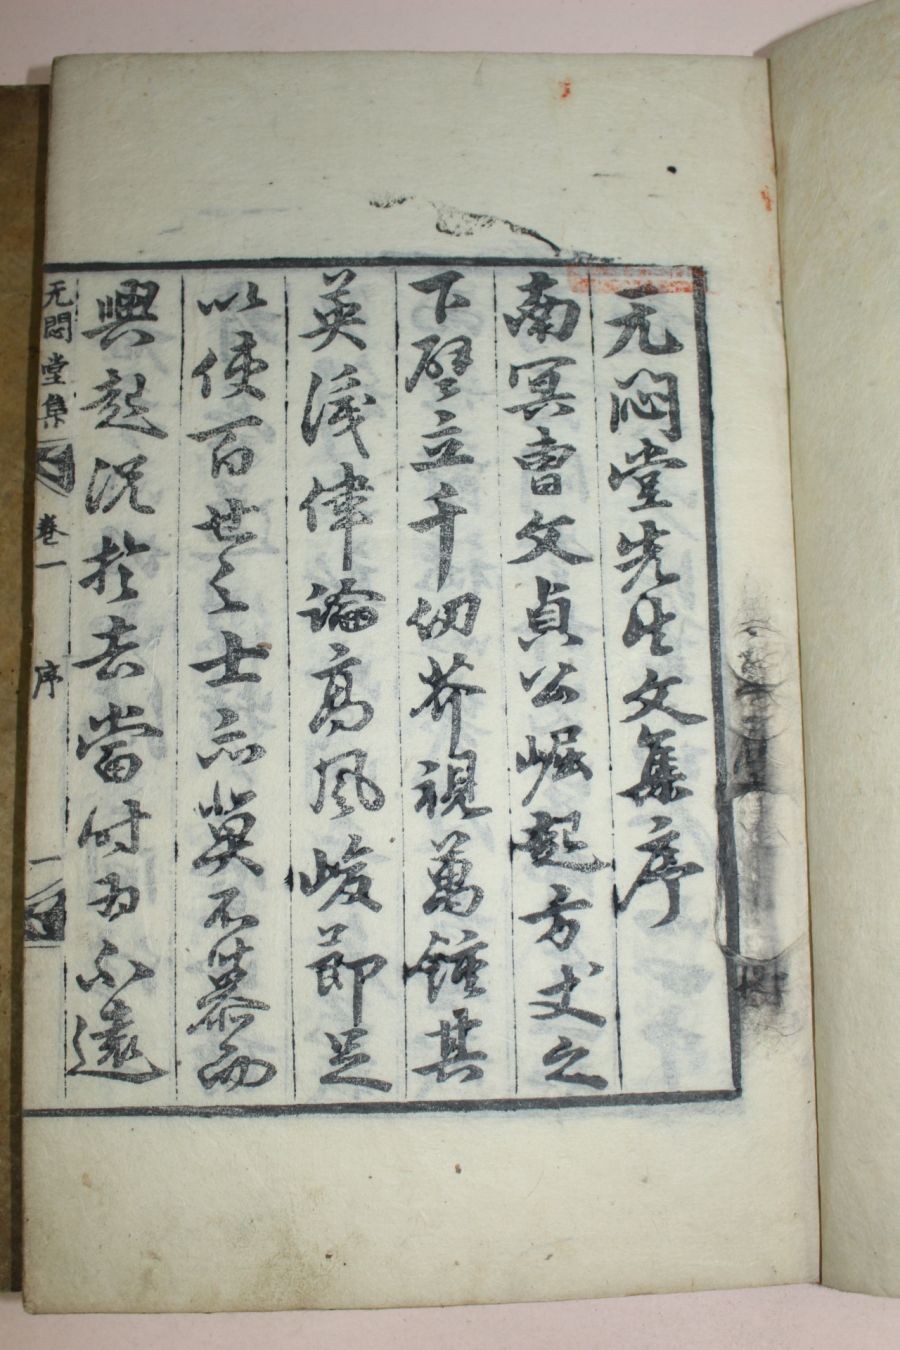 无悶堂先生文集序
南冥曺文貞公崛起方丈之
下壁立千仞芥視萬鍾其
英 偉論高風峻節足
以使百世之士亦莫不慕而
興起況於去當時為不遠
无悶堂集
卷一
序
一